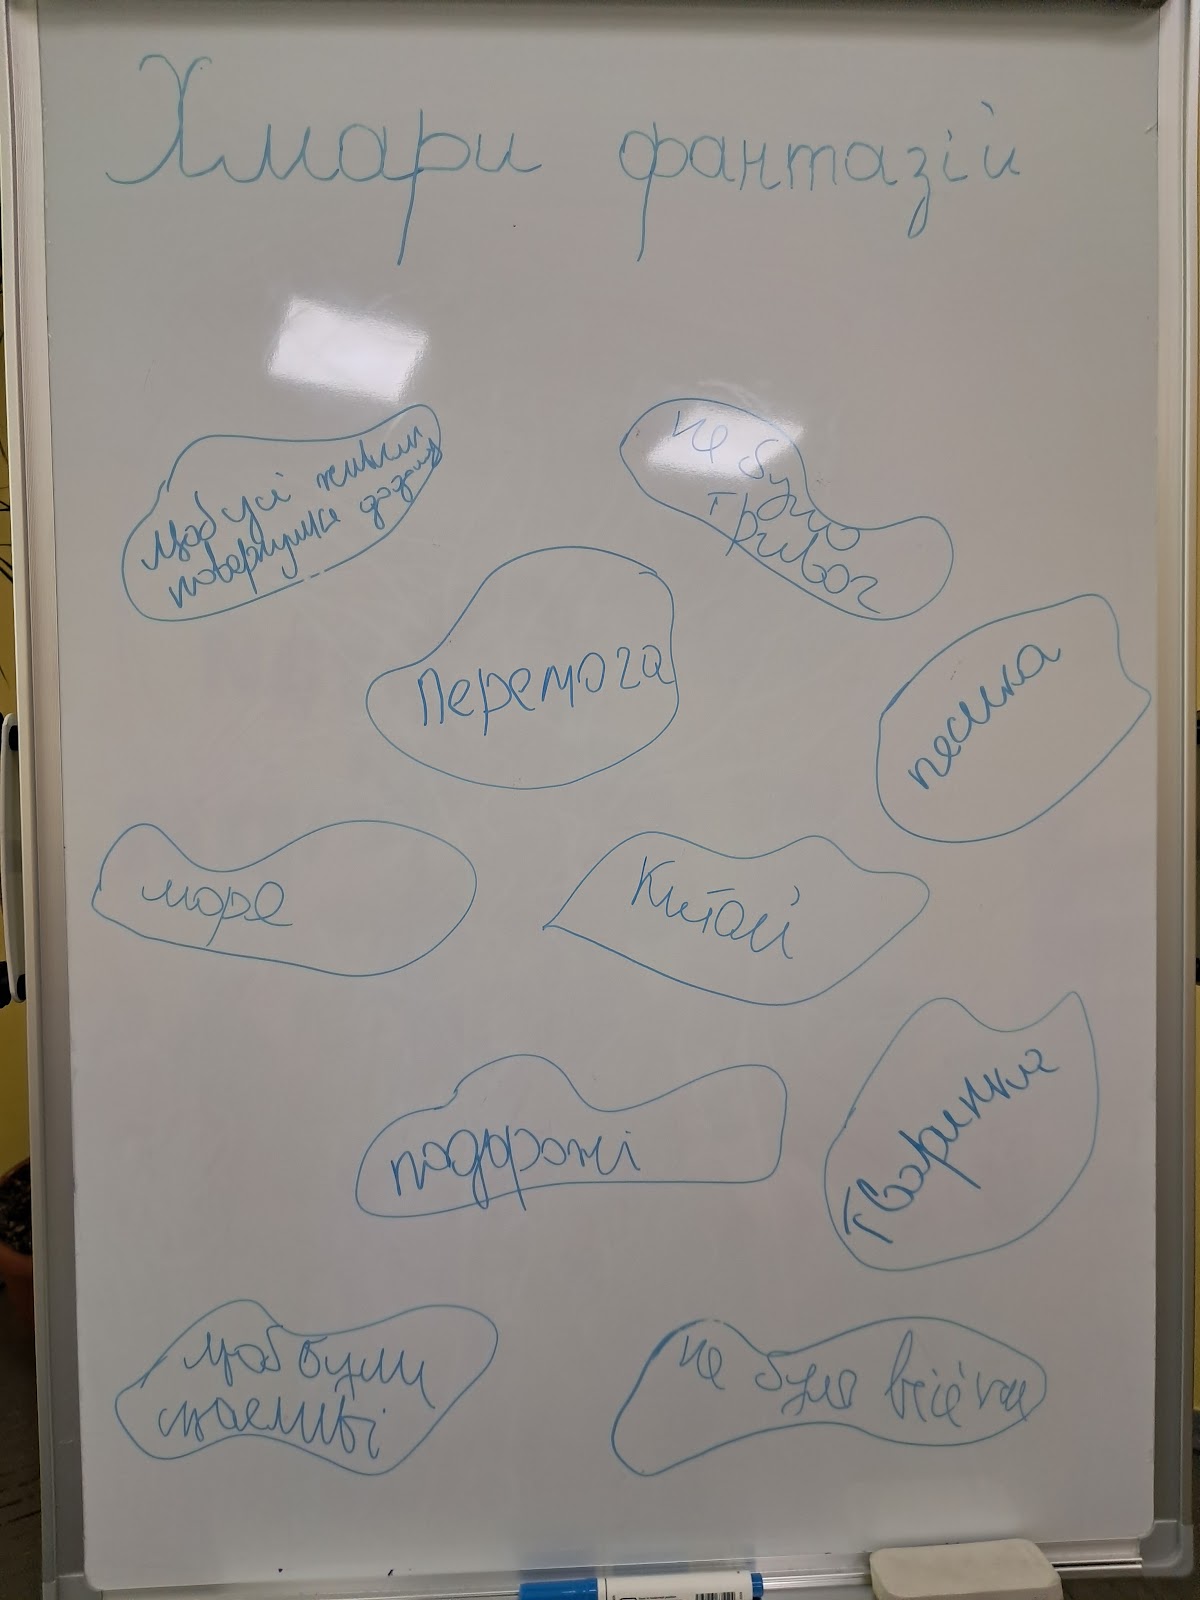 Хмари фантазій
щоб усі живими
повернулися додому
не було
тривог
Перемога
песика
море
Китай
подорожі
Тваринка
щоб були
щасливі
не було